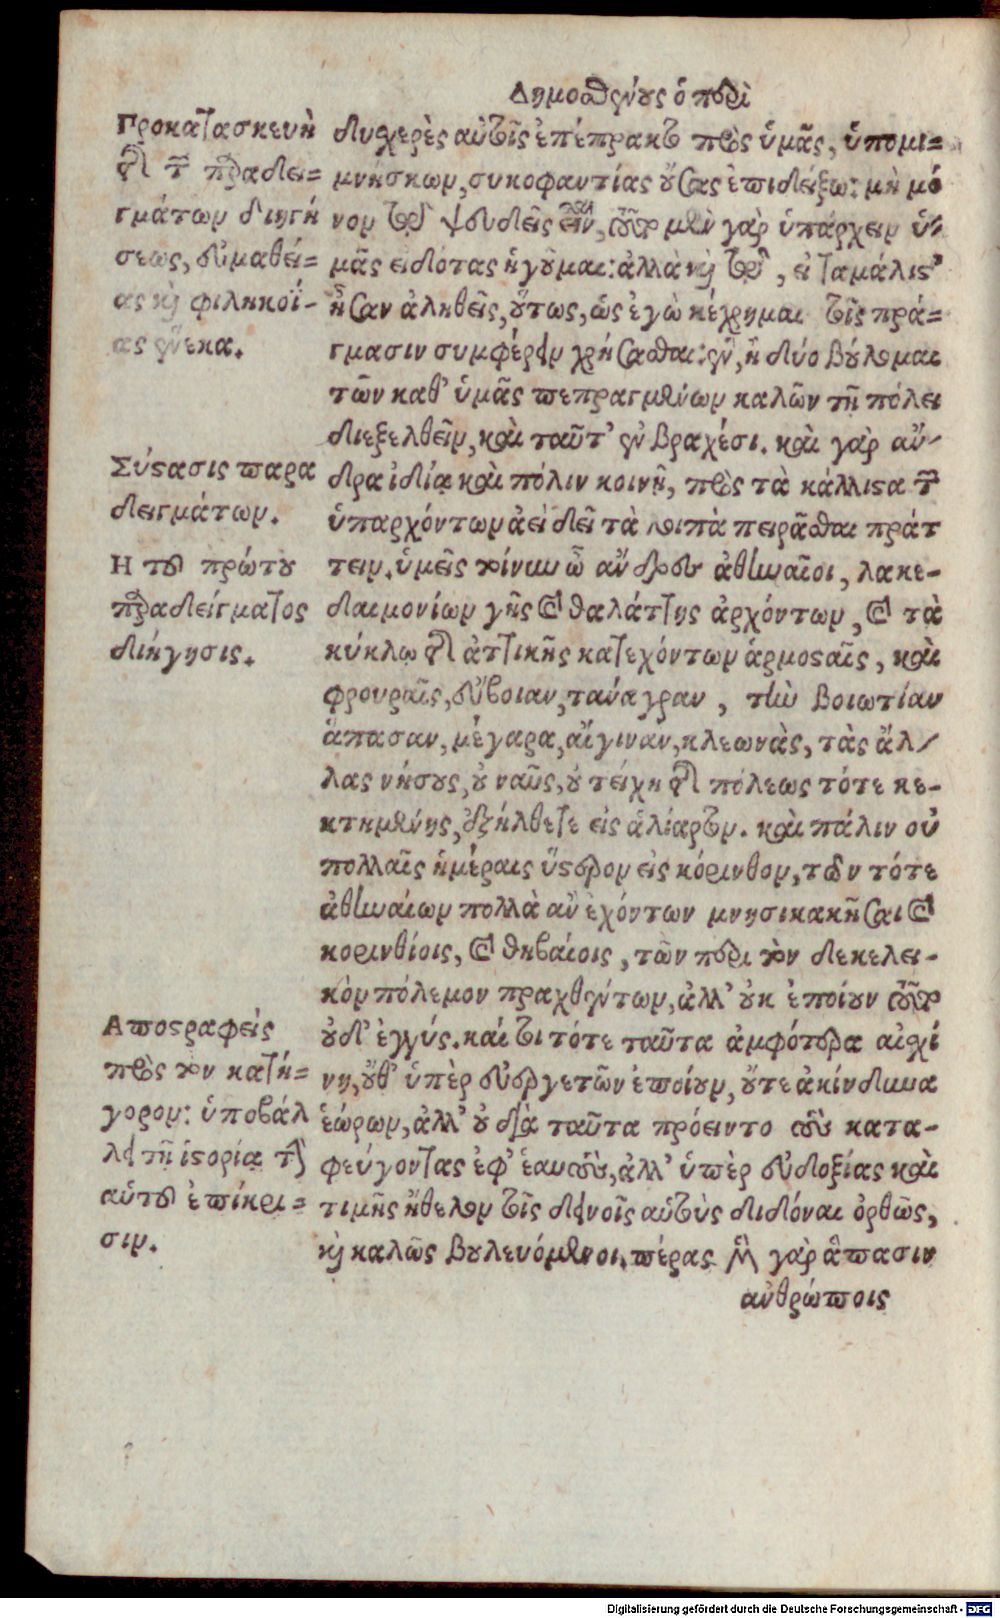 Δημοσθένους ὁ περὶ
Προκατασκευὴ
τῆς τῶν παραδει=
γμάτων διηγή
σεως, εὐμαθεί=
ας καὶ φιληκοΐ-
ας ἕνεκα.
Σύστασις παρα
δειγμάτων.
Η τοῦ πρώτου
παραδείγματος
διήγησις.
Αποστραφεὶς
πρὸς τὸν κατή=
γορον: ὑποβάλ
λει τῇ ἱστορίᾳ τὴν
αὑτοῦ ἐπίκρι=
σιν.
δυσχερὲς αὐτοῖς ἐπέπρακτο πρὸς ὑμᾶς, ὑπομι=
μνησκων, συκοφαντίας οὔσας ἐπιδείξω: μὴ μό
νον τῷ ψευδεῖς εἶναι, τοῦτο μὲν γὰρ ὑπάρχειν ὑ-
μᾶς εἰδότας ἡγοῦμαι: ἀλλὰ καὶ τῷ, εἰ ταμάλιστ'
ἦσαν ἀληθεῖς, οὕτως, ὡς ἐγὼ κέχρημαι τοῖς πρά=
γμασιν συμφέρειν χρήσασθαι: ἓν, ἢ δύο βούλομαι
τῶν καθ' ὑμᾶς πεπραγμένων καλῶν τῇ πόλει
διεξελθεῖν, καὶ ταῦτ' ἐν βραχέσι. καὶ γὰρ ἄν-
δρα ἰδίᾳ καὶ πόλιν κοινῇ, πρὸς τὰ κάλλιστα τῶν
ὑπαρχόντων ἀεὶ δεῖ τὰ λοιπὰ πειρᾶσθαι πράτ
τειν. ὑμεῖς τοίνυν ὦ ἄνδρες ἀθηναῖοι, λακε-
δαιμονίων γῆς καὶ θαλάττης ἀρχόντων, καὶ τὰ
κύκλω τῆς ἀττικῆς κατεχόντων ἁρμοσταῖς, καὶ
φρουραῖς, εὔβοιαν, τανάγραν, τὴν βοιωτίαν
ἅπασαν, μέγαρα, αἴγιναν, κλεωνὰς, τὰς ἄλ-
λας νήσους, οὐ ναῦς, οὐ τείχη τῆς πόλεως τότε κε-
κτημένης, ἐξήλθετε εἰς ἁλίαρτον. καὶ πάλιν οὐ
πολλαῖς ἡμέραις ὕστερον εἰς κόρινθον, τῶν τότε
ἀθηναίων πολλὰ ἂν ἐχόντων μνησικακῆσαι καὶ
κορινθίοις, καὶ θηβαίοις, τῶν περὶ τὸν δεκελει-
κὸν πόλεμον πραχθέντων, ἀλλ' οὐκ ἐποίουν τοῦτο
οὐδ' ἐγγύς. καί τοι τότε ταῦτα ἀμφότερα αἰσχί
νη, οὔθ' ὑπὲρ εὐεργετῶν ἐποίουν, οὔτε ἀκίνδυνα
ἑώρων, ἀλλ' οὐ διὰ ταῦτα πρόειντο τοὺς κατα-
φεύγοντας ἐφ' ἑαυτοὺς, ἀλλ' ὑπὲρ εὐδοξίας καὶ
τιμῆς ἤθελον τοῖς δεινοῖς αὑτοὺς διδόναι ὀρθῶς,
καὶ καλῶς βουλευόμενοι. πέρας μὲν γὰρ ἅπασιν
ἀνθρώποις
Digitalisierung gefördert durch die Deutsche Forschungsgemeinschaft - DFG